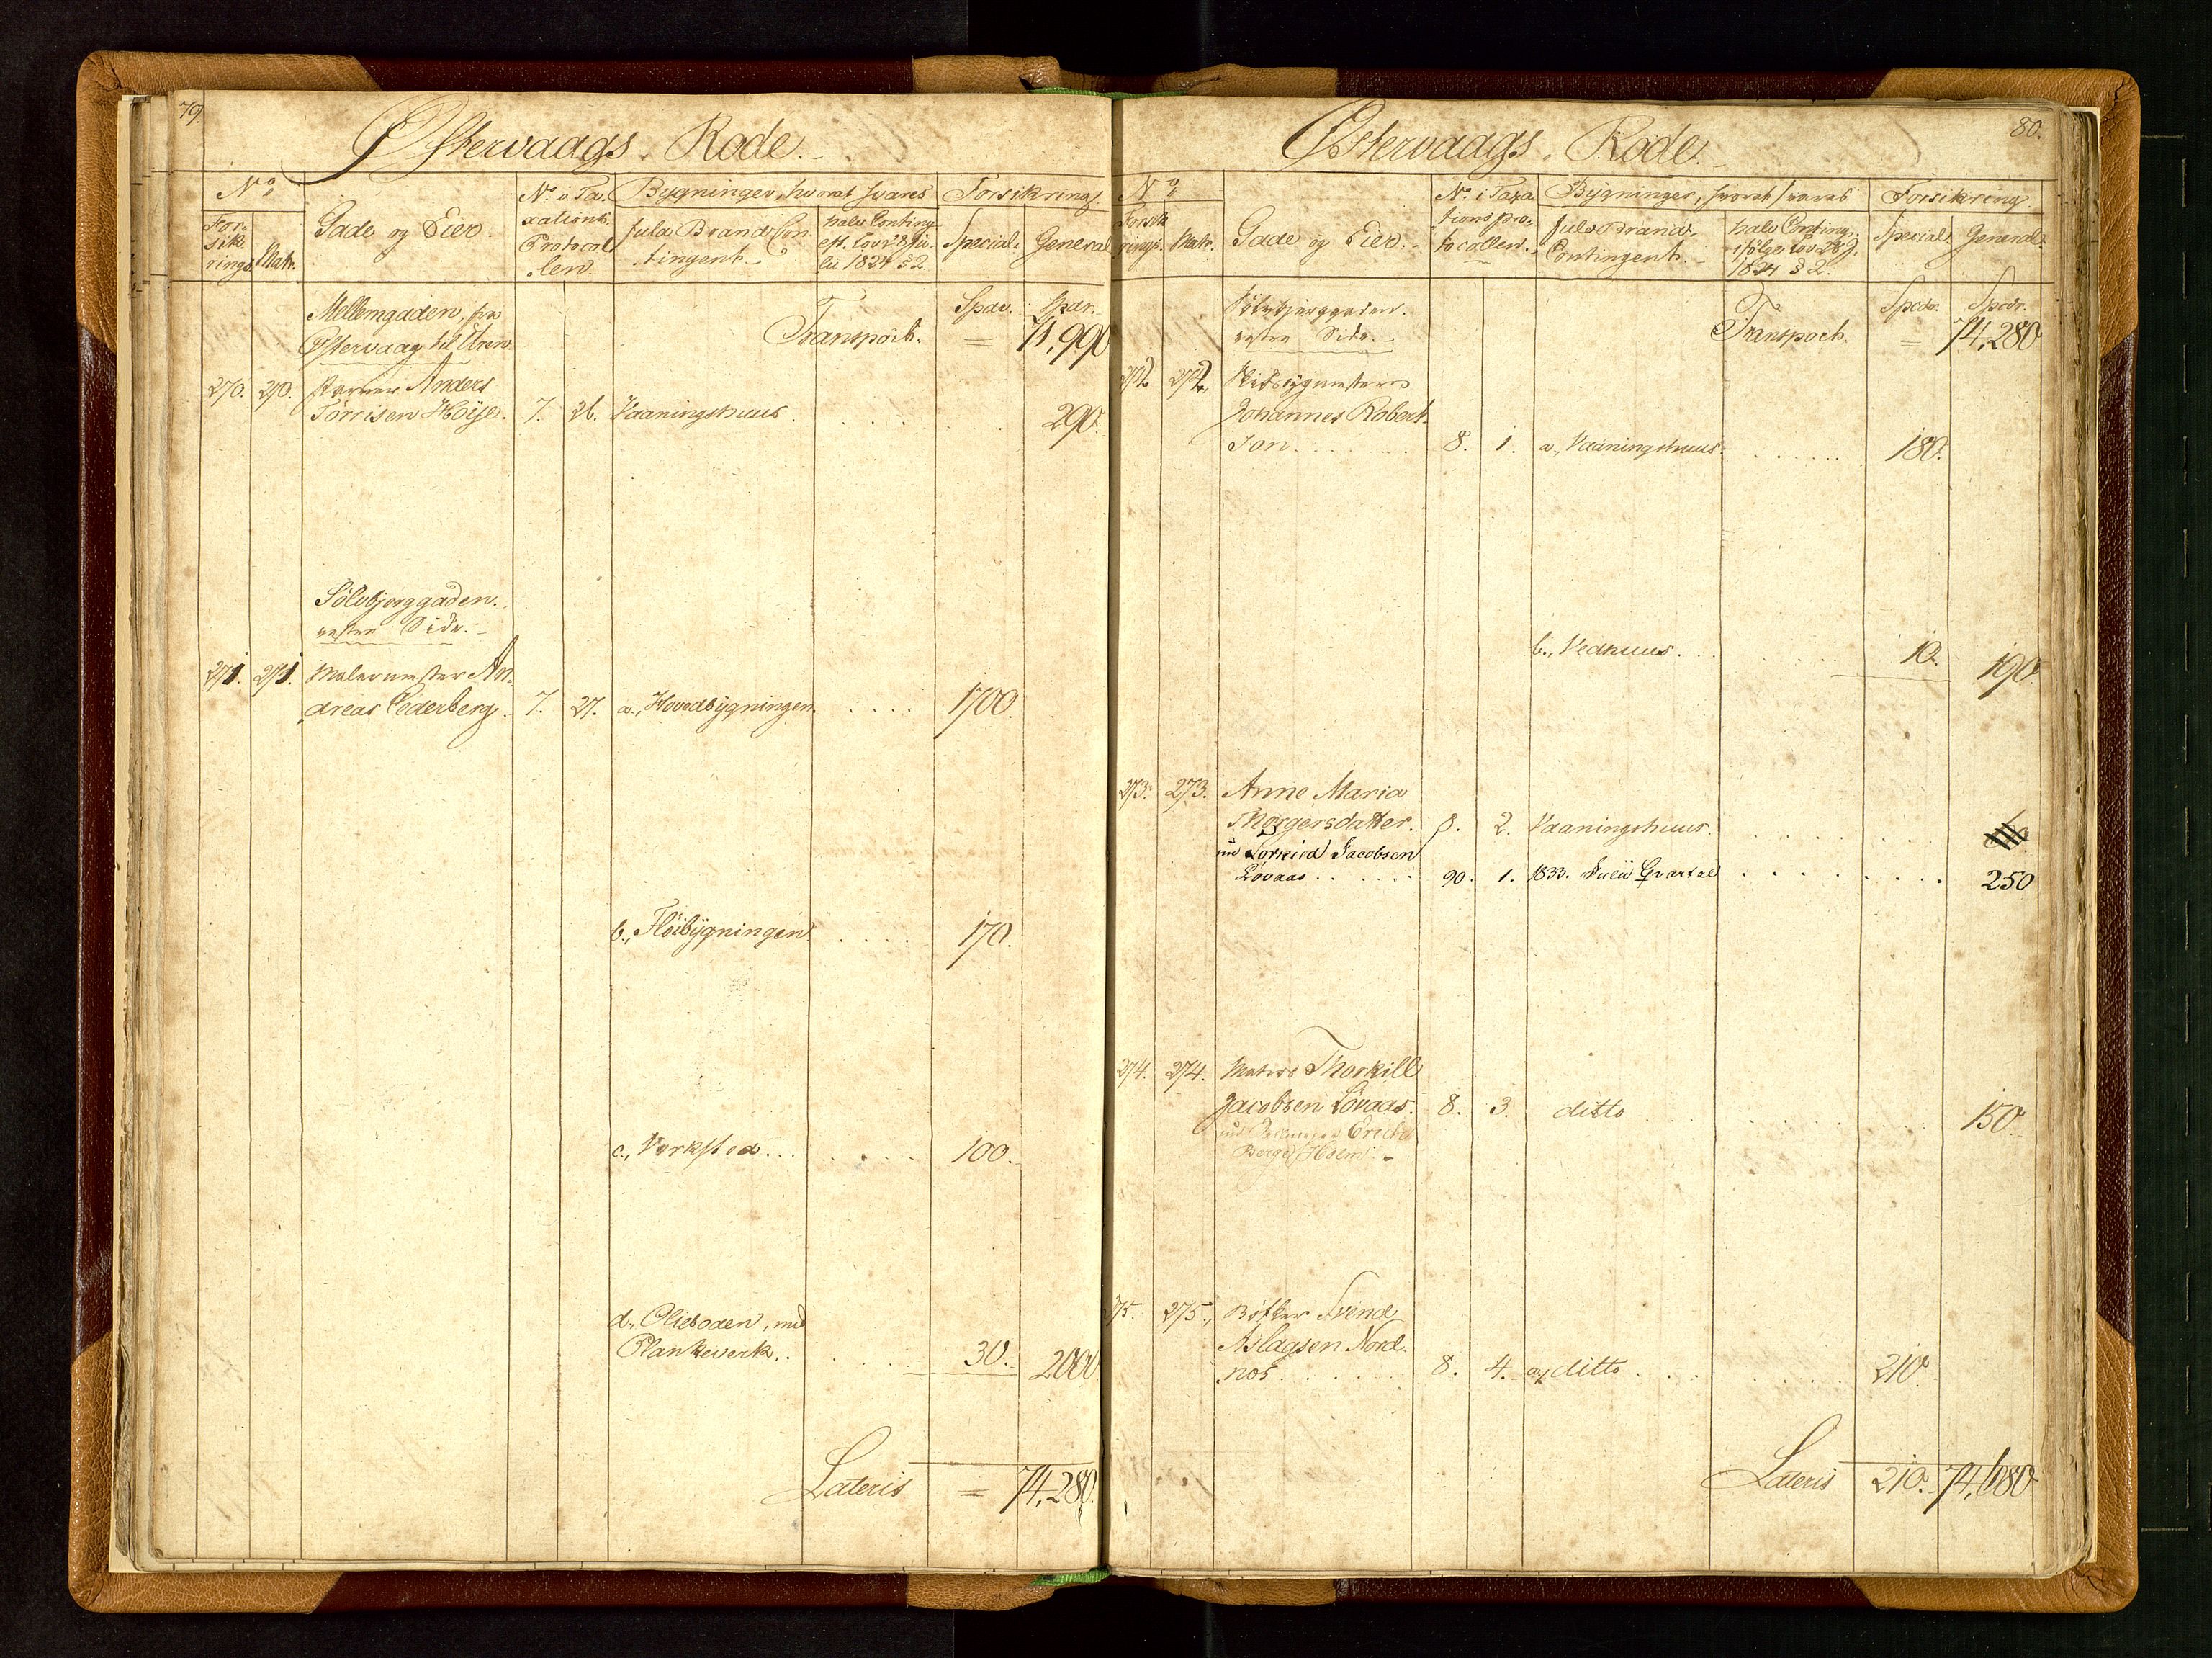 79.
Østervaags Rode.
No
For-
sik-
rings
Matr.
Gade og Eier.
No i Ta-
xations
Protocol
len.
Bygninger, hvoraf svares
fuld Brand Con
tingent
halv Conting.
eft. Lov 28 Ju-
lii 1824 § 2.
Forsikring
Special.
General
Mellemgaden, fra
Østervaag til Uren.
Transport.
Spdr.
Spdr.
=
71,990
270.
270.
Anders
Tørrisen Höÿe.
7.
26.
Vaaningshuus.
290.
Sölvbjerggaden.
vestre Side.
271.
271.
Malermester An-
dreas Cederberg.
7.
27.
a., Hovedbÿgningen.
1700.
b., Flöibÿgningen.
170.
c., Verksted...
100.
d., Olieboden, med
Plankeverk..
30.
2000.
Lateris
=
74,280.
80.
Østervaags Rode.
No
Forsik
rings.
Matr.
Gade og Eier.
No i Taxa
tionspro-
tocollen.
Bygninger, hvoraf svares
fuld Brand-
Contingent.
halv Conting.
ifölge Lov 28 J.
1824 § 2.
Forsikring.
Special.
General.
Sölvbjerggaden.
vestre Side.
Transport.
Spdr.
Spdr.
=
74,280
272.
272.
Skibbÿgmester
Johannes Robert-
son.
8.
1.
a., Vaaningshuus.
180.
b., Vedhuus.
10.
190.
273.
273.
Anne Maria
Thorgersdatter.
8.
2.
Vaaningshuus.
nu Torkild Jacobsen
Lövaas
90.
1.
1833. Julii Qvartal
250
274.
274.
Matros Thorkill
Jacobsen Lövaas.
8.
3.
ditto
150.
nu Erich
Berge Holm.
275.
275.
Bödker Svend
Aslagsen Nord-
nos
8.
4.
a., ditto
210.
Lateris
210.
74,680